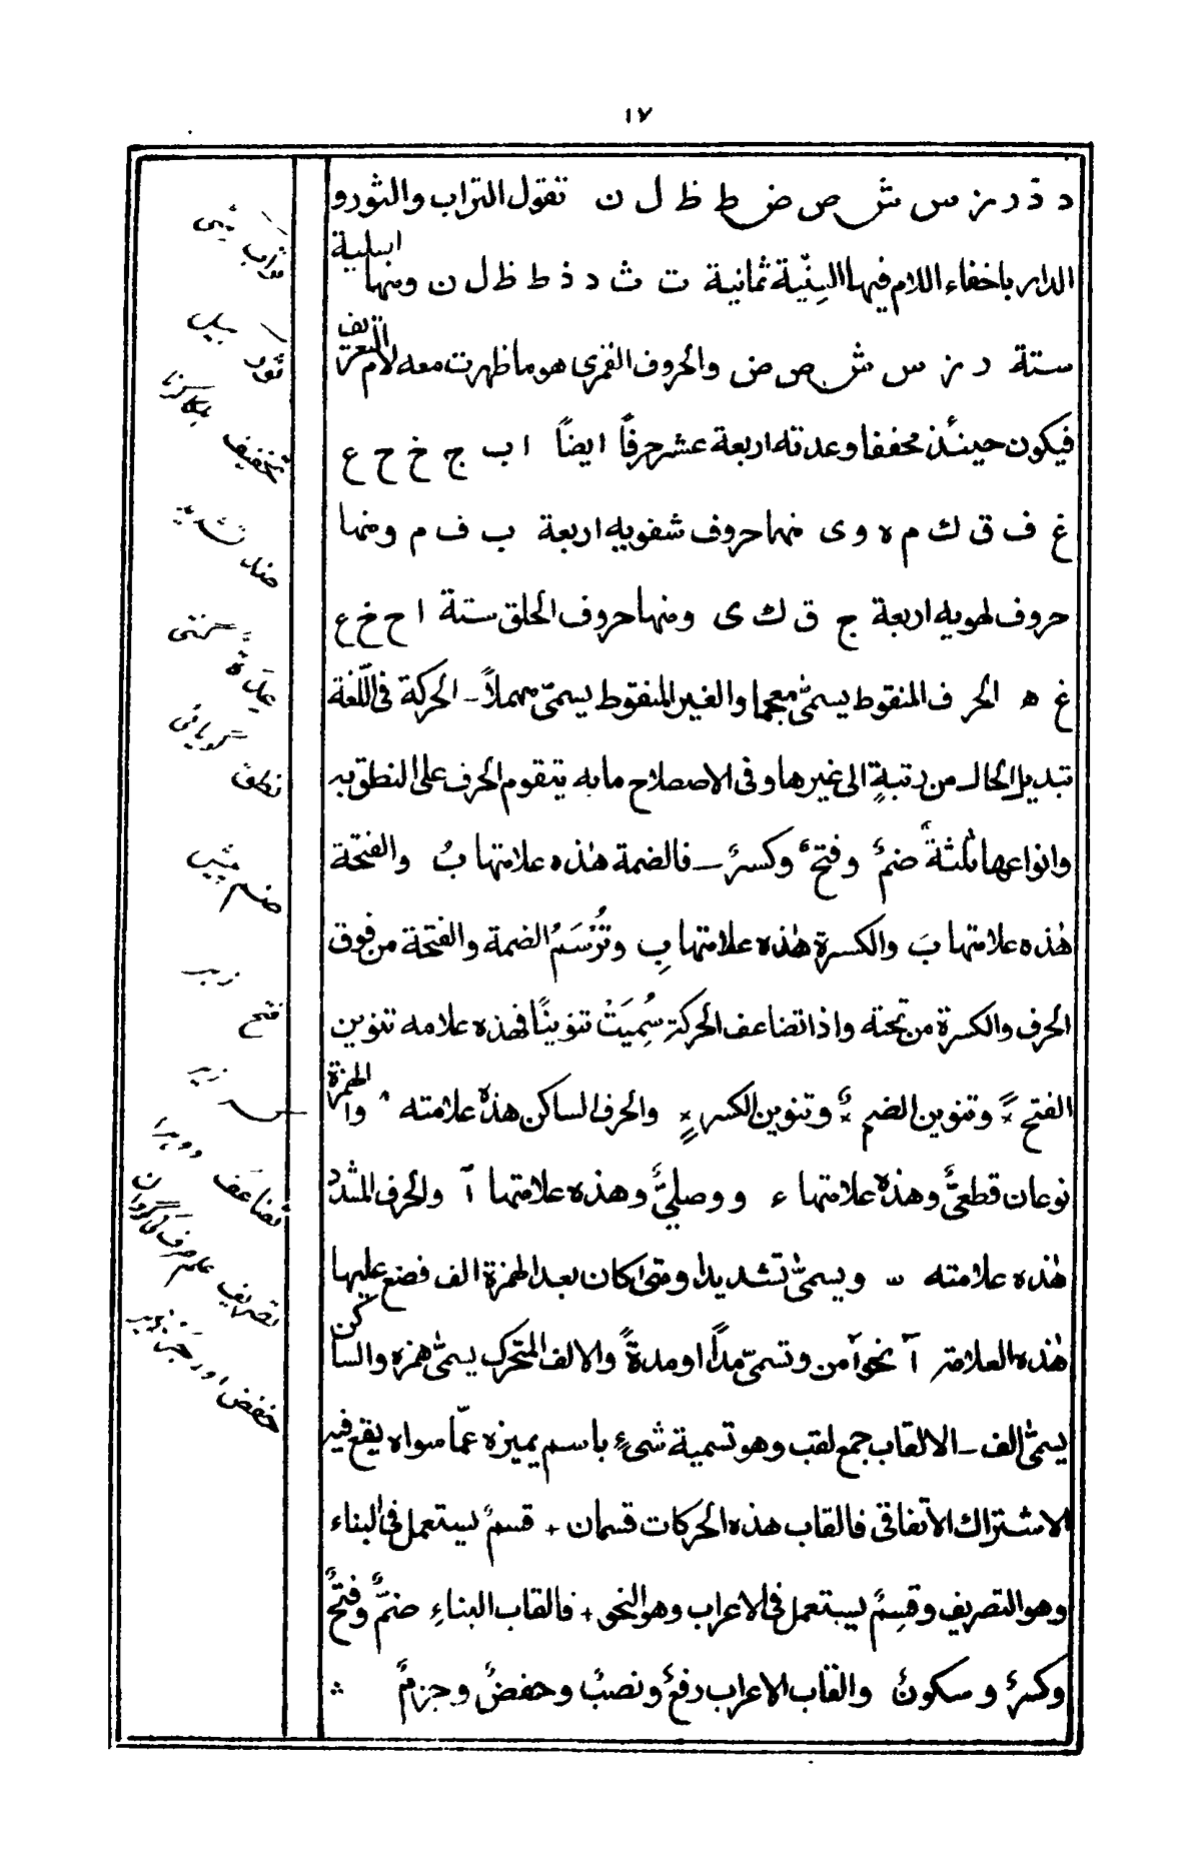 ١٧
د ذ ر ز س ش ص ض ط ظ ل ن تقول التراب والثور و
الدار باخفاء اللام فيها اللِثنيّة ثمانية ت ث د ذ ط ظ ل ن ومنها اسلية
ستة ر ز س ش ص ض والحروف القمرى هو ما ظهرت معه لام التعريف
فيكون حينئذ مخففا وعدته اربعة عشر حرفًا ايضًا ا ب ج خ ح ع
غ ف ق ك م ه و ى منها حروف شفويه اربعة ب ف م ومنها
حروف لهويه اربعة ج ق ك ى ومنها حروف الحلق ستة ا ح خ ع
غ ه الحرف المنقوط يسمىّ معجما والغير المنقوط يسمىّ مهملاً ــ الحركة فى اللّغة
تبديل الحال من رتبةٍ الى غيرها وفى الاصطلاح ما به يتقوم الحرف على النطق به
وانواعها ثلثةٌ ضمٌ وفتحٌ وكسرٌ ــ فالضمة هذه علامتها بُ والفتحة
هٰذه علامتها بَ والكسرة هٰذه علامتها بِ وتُرْسَمُ الضمة والفتحة من فوق
الحرف والكسرة من تحته واذا تضاعف الحركة سُمِيَتْ تنوينًا فهذه علامه تنوين
الفتح ×ً وتنوين الضم ×ٌ وتنوين الكسر ×ٍ والحرف الساكن هذه علامته ^ والهمزة
نوعان قطعىٌّ وهذه علامتها ء ووصلىٌّ وهذه علامتها آ والحرف المشدد
هٰذه علامته ّ ويسمىّ تشديدا ومتى كان بعد الهمزة الف فضع عليها
هٰذه العلامة آ نحو آمن وتسمىّ مدًا او مدةً والالف المتحرك يسمىّ همزه والساكن
يسمىّ الف ــ الالقاب جمع لقب وهو تسمية شىءٍ باسم يميزه عمّا سواه يقع فيه
الاشتراك الاتفاقى فالقاب هذه الحركات قسمان + قسمٌ يستعمل فى البناء
وهو التصريف وقسمٌ يستعمل فى الاعراب وهو النحو + فالقاب البناءِ ضمٌّ وفتحٌ
وكسرٌ وسكونٌ والقاب الاعراب رفعٌ ونصبٌ وخفضٌ وجزمٌ
تراب
ثور
تخفيف
ضد تشديد
عدّة
گويائى
نطق
ضم پيش
زبر
فتح
زير
كسر
تضاعف
تصريف علم صرف
خفض اور جر زير